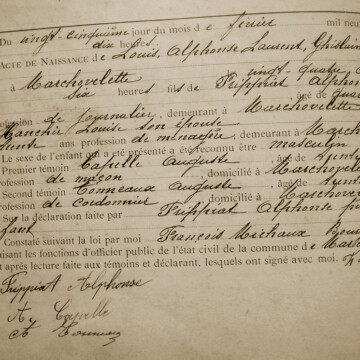 Du vingt-cinquième jour du mois de février mil neuf
dix heures
ACTE DE NAISSANCE de Louis, Alphonse Laurent, Ghislain
à Marchovelette vingt-quatre
six heures fils de Frippiat Alphonse
, âgé de quar
ofession de journalier, demeurant à Marchovelette
Louise son épouse
ans profession de ménagère, demeurant à March
Le sexe de l'enfant qui a été présenté a été reconnu être masculin
Premier témoin Capelle Auguste , âgé de
ofession de maçon , domicilié à Marchovele
Second témoin Tonneaux Auguste , âgé de
ofession de cordonnier , domicilié à Marchovele
Sur la déclaration faite par Frippiat Alphonse
fant
Constaté suivant la loi par moi François Michaux
isant les fonctions d'officier public de l'état civil de la commune de March
t après lecture faite aux témoins et déclarant, lesquels ont signé avec moi.
Frippiat Alphonse
A. Capelle
A